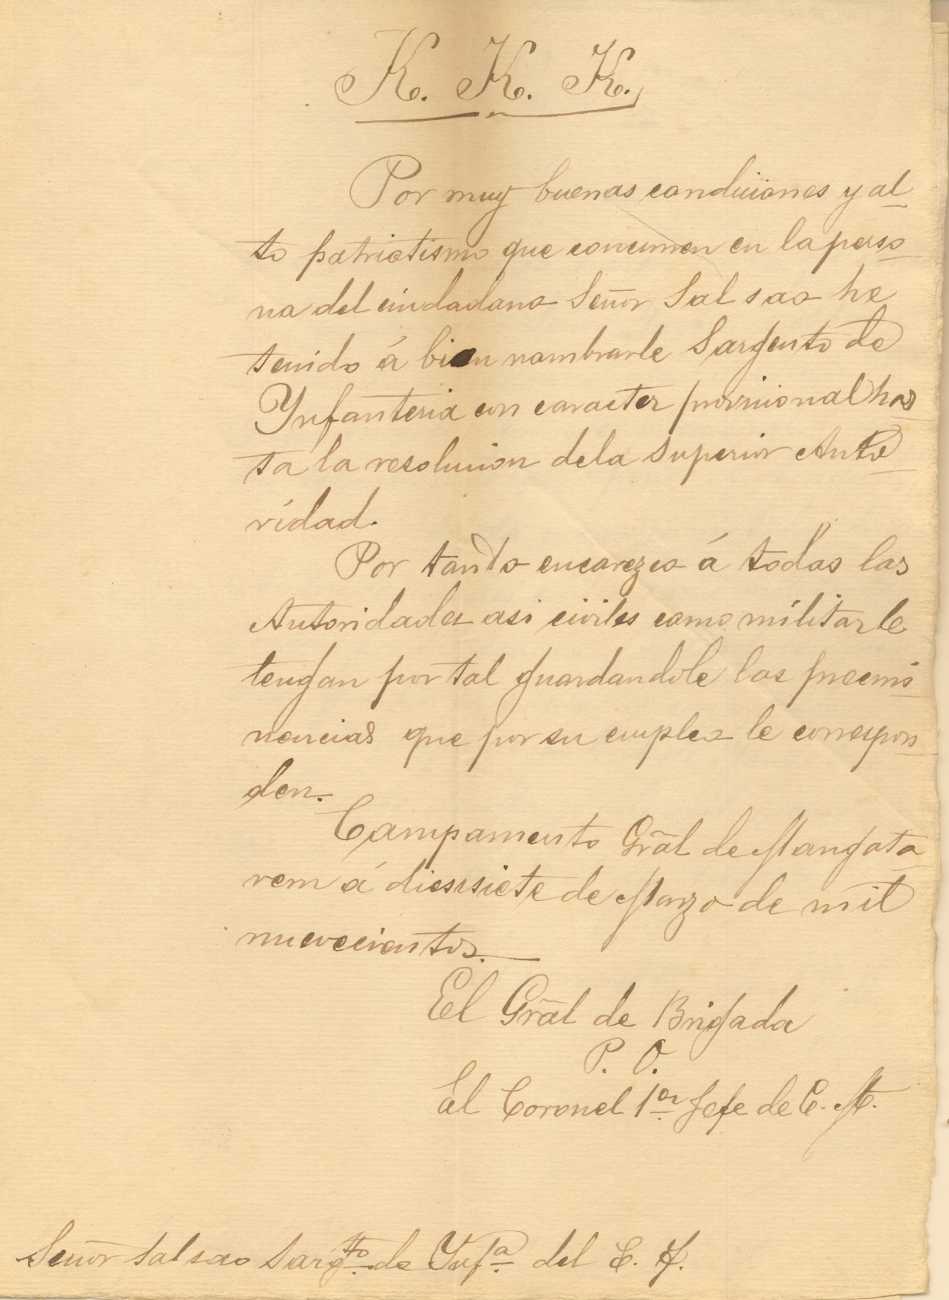 K. K. K.
Por muy buenas condiciones y al-
to patriotismo que concurren en la perso-
na del ciudadano Señor Salsao he
tenido á bien nombrarle Sargento de
Ynfanteria con caracter provicional has-
ta la resolucion dela superior Auto-
ridad.
Por tanto encarezco á todas las
Autoridades asi civiles como militar le
tengan por tal guardandole las preemi-
nencias que por su empleo le correspon-
den.
Campamento Grãl de Mangata-
rem á diesisiete de Marzo de mil
nuevecientos.
El Grãl de Brigada
P. O.
El Coronel 1er Jefe de E. M.
Señor Salsao Sargto de Ynfa del E. F.